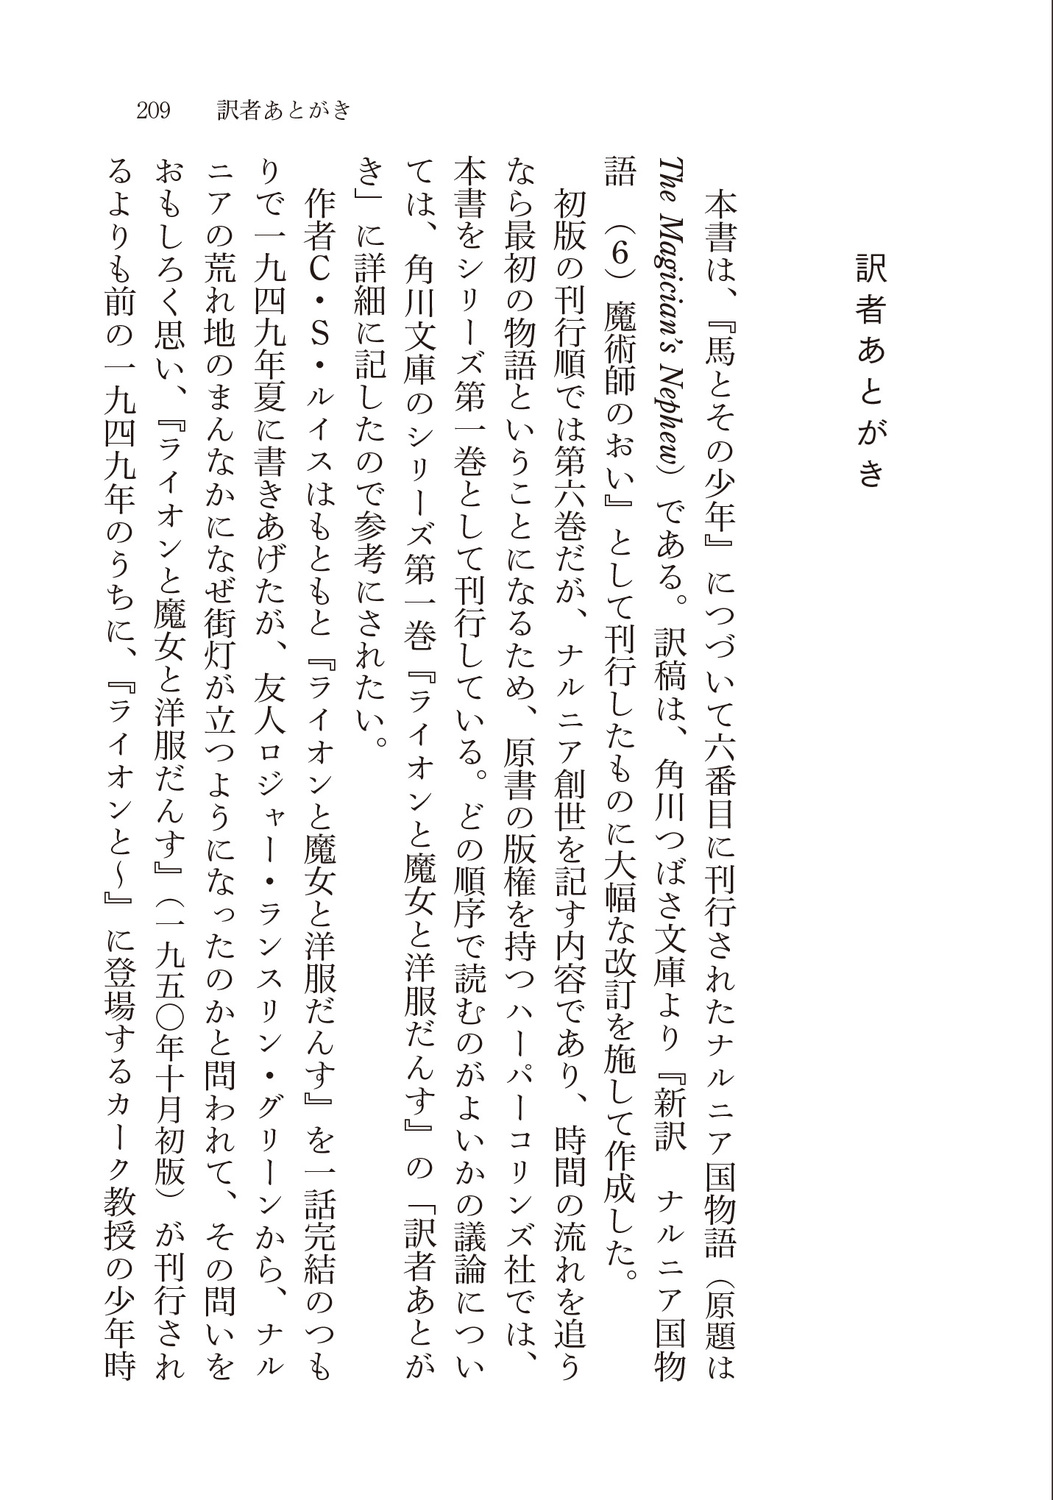 209　訳者あとがき
訳者あとがき
　本書は、『馬とその少年』につづいて六番目に刊行されたナルニア国物語（原題は
The Magician’s Nephew）である。訳稿は、角川つばさ文庫より『新訳　ナルニア国物
語　（6）魔術師のおい』として刊行したものに大幅な改訂を施して作成した。
　初版の刊行順では第六巻だが、ナルニア創世を記す内容であり、時間の流れを追う
なら最初の物語ということになるため、原書の版権を持つハーパーコリンズ社では、
本書をシリーズ第一巻として刊行している。どの順序で読むのがよいかの議論につい
ては、角川文庫のシリーズ第一巻『ライオンと魔女と洋服だんす』の「訳者あとが
き」に詳細に記したので参考にされたい。
　作者C・S・ルイスはもともと『ライオンと魔女と洋服だんす』を一話完結のつも
りで一九四九年夏に書きあげたが、友人ロジャー・ランスリン・グリーンから、ナル
ニアの荒れ地のまんなかになぜ街灯が立つようになったのかと問われて、その問いを
おもしろく思い、『ライオンと魔女と洋服だんす』（一九五〇年十月初版）が刊行され
るよりも前の一九四九年のうちに、『ライオンと～』に登場するカーク教授の少年時